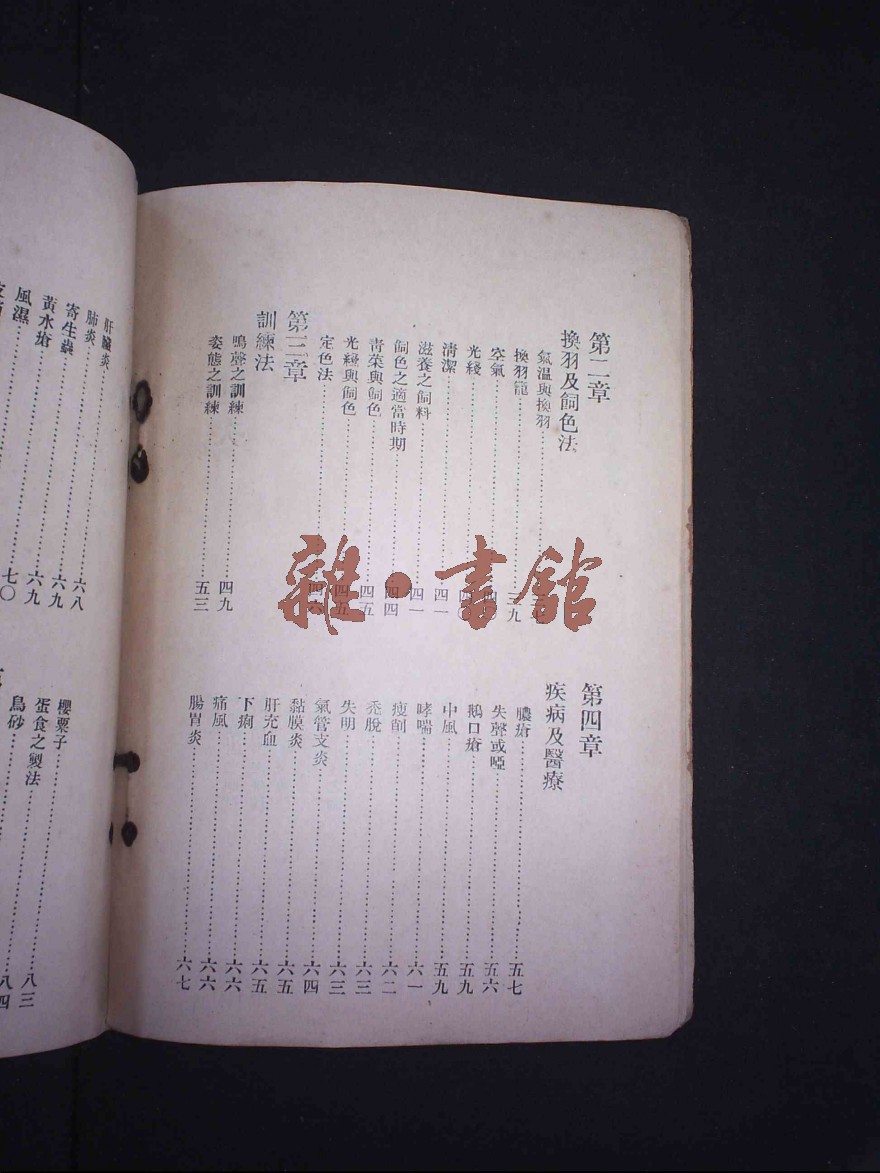 第二章
換羽及飼色法
氣溫與換羽……
換羽籠……三九
空氣……
光綫……
清潔……四一
滋養之飼料……四一
飼色之適當時期……四四
青菜與飼色……四五
光綫與飼色……四五
定色法……四六
第三章
訓練法
鳴聲之訓練……四九
姿態之訓練……五三
第四章
疾病及醫療
膿瘡……五七
失聲或啞……五六
鵝口瘡……五九
中風……五九
哮喘……六一
瘦削……六二
禿脫……六三
失明……六三
氣管支炎……六四
黏膜炎……六五
肝充血……六五
下痢……六六
痛風……六六
腸胃炎……六七
肝臟炎……
肺炎……六八
寄生蟲……六九
黃水瘡……六九
風濕……七〇
櫻粟子……
蛋食之製法……八三
鳥砂……八四
雜·書館